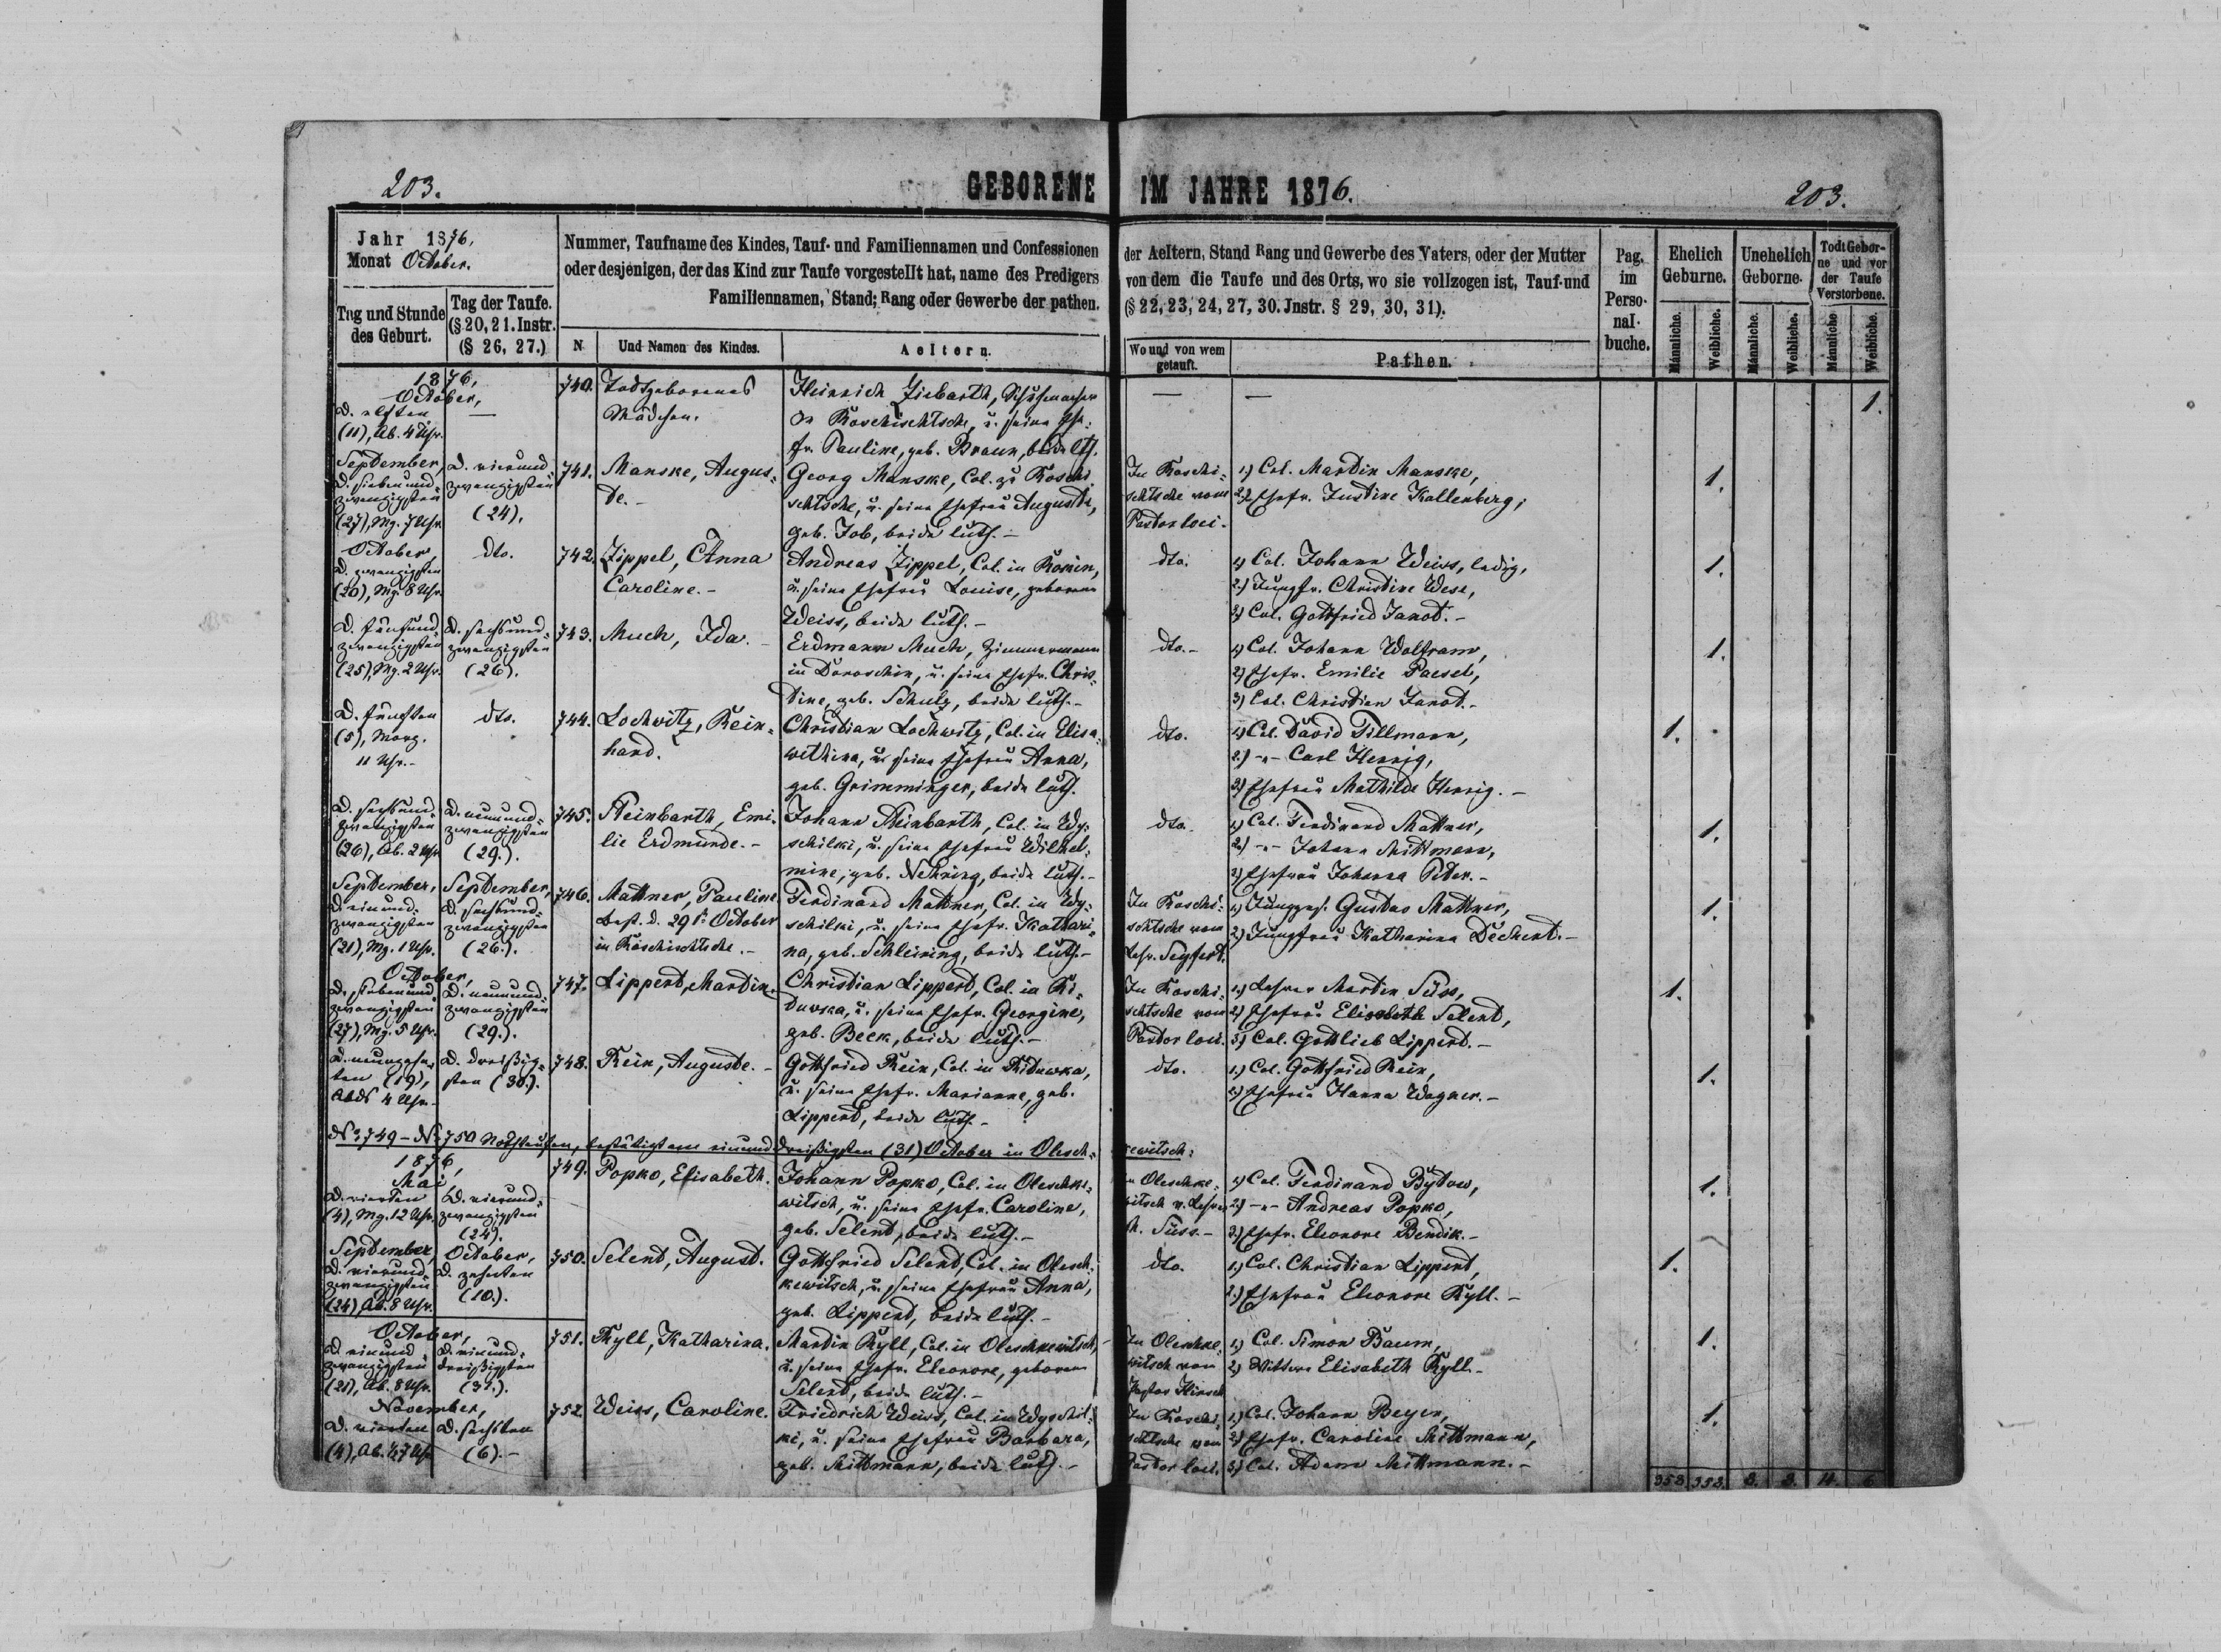 203.
GEBORENE IM JAHRE 1876.
203.
Jahr 1876,
Monat October.
Tag und Stunde
des Geburt.
Tag der Taufe.
(§ 20, 21. Instr.
(§ 26, 27.)
Nummer, Taufname des Kindes, Tauf- und Familiennamen und Confessionen
oder desjenigen, der das Kind zur Taufe vorgestellt hat, name des Predigers
Familiennamen, Stand; Rang oder Gewerbe der pathen.
N
Und Namen des Kindes.
Aeltern.
der Aeltern, Stand Rang und Gewerbe des Vaters, oder der Mutter
von dem die Taufe und des Orts, wo sie vollzogen ist, Tauf-und
(§ 22, 23, 24, 27, 30. Jnstr. § 29, 30, 31).
Wo und von wem
getauft.
Pathen.
Pag.
im
Perso-
nal-
buche.
Ehelich
Geburne.
Unehelich
Geborne.
Todt Gebor-
ne und vor
der Taufe
Verstorbene.
Männliche.
Weibliche.
Männliche.
Weibliche.
Männliche
Weibliche.
1876,
October,
D. elften
(11), Ab. 4 Uhr.
—
740.
Todtgeborenes
Mädchen.
Heinrich Ziebarth, Schuhmacher
in Koschischtsche, u. seine Ehe-
fr. Pauline, geb. Braun, beide lth.
—
—
1.
September,
D. sieben und-
zwanzigsten
(27), Mg. 7 Uhr.
D. vierund-
zwanzigsten
(24).
741.
Manske, Augus-
te. -
Georg Manske, Col. zu Koschi-
schtsche, u. seine Ehefrau Auguste,
geb. Job, beide luth. -
In Koschi-
schtsche vom
Pastor loci.
1.) Col. Martin Manske,
2.) Ehefr. Justine Kallenberg;
1.
October,
D. zwanzigsten
(20), Mg. 8 Uhr.
dto.
742.
Zippel, Anna
Caroline. -
Andreas Zippel, Col. in Romin,
u. seine Ehefrau Louise, geborene
Weiss, beide luth. -
dto.
1.) Col. Johann Weiss, ledig,
2.) Jungfr. Christine Wese,
3.) Col. Gottfried Janot. -
1.
D. fünfund-
zwanzigsten
(25), Mg. 2 Uhr.
D. sechsund-
zwanzigsten
(26).
743.
Much, Ida. -
Erdmann Much, Zimmermann
in Doroschin, u. seine Ehefr. Chris-
tine, geb. Schulz, beide luth. -
dto. -
1.) Col. Johann Wolfram,
2.) Ehefr. Emilie Paesel,
3.) Col. Christian Janot. -
1.
D. fünften
(5), Morg.
11 Uhr. -
dto.
744.
Lochwitz, Rein-
hard.
Christian Lochwitz, Col. in Elisa-
wethina, u. seine Ehefrau Anna,
geb. Grimminger, beide luth.
dto.
1.) Col. David Tillmann,
2.) -"- Carl Hennig,
3.) Ehefrau Mathilde Hennig. -
1.
D. sechsund-
zwanzigsten
(26), Ab. 2 Uhr
D. neunund-
zwanzigsten
(29.).
745.
Steinbarth, Emi-
lie Erdmunde. -
Johann Steinbarth, Col. in Wy-
schilki, u. seine Ehefrau Wilhel-
mine, geb. Nehring, beide luth. -
dto.
1.) Col. Ferdinand Mattner,
2.) -"- Johann Mittmann,
3.) Ehefrau Johanna Peter. -
1.
September,
D. einund-
zwanzigsten
(21), Mg. 1 Uhr.
September,
D. sechsund-
zwanzigsten
(26.).
746.
Mattner, Pauline
best. d. 29t. October
in Koschischtsche. -
Ferdinand Mattner, Col. in Wy-
schilki, u. seine Ehefr. Kathari-
na, geb. Schleining, beide luth. -
In Koschi-
schtsche vom
Lehr. Seyfert.
1.) Jungges. Gustav Mattner,
2.) Jungfrau Katharina Dechent. -
1.
October,
D. siebenund-
zwanzigsten
(27), Mg. 5 Uhr.
D. neunund-
zwanzigsten
(29.).
747.
Lippert, Martin.
Christian Lippert, Col. in Ki-
duwka, u. seine Ehefr. Georgine,
geb. Beck, beide luth. -
In Koschi-
schtsche vom
Pastor loci.
1.) Lehrer Martin Süss,
2.) Ehefrau Elisabeth Selent,
3.) Col. Gottlieb Lippert. -
1.
D. neunzehn-
ten (19),
Abds 4 Uhr. -
D. dreißig-
sten (30.).
748.
Rein, Auguste. -
Gottfried Rein, Col. in Kiduwka,
u. seine Ehefr. Marianne, geb.
Lippert, beide luth. -
dto.
1.) Col. Gottfried Rein,
2.) Ehefrau Hanna Wagner. -
1.
No. 749 - No. 750 Nothtaufen, bestätigt am einunddreißigsten (31) October in Olesch-
kewitsch:
1876,
Mai,
D. vierten
(4), Mg. 12 Uhr.
D. vierund-
zwanzigsten
(24).
749.
Popko, Elisabeth.
Johann Popko, Col. in Oleschke-
witsch, u. seine Ehefr. Caroline,
geb. Selent, beide luth. -
In Oleschke-
witsch v. Lehrer
M. Süss. -
1.) Col. Ferdinand Bytow,
2.) -"- Andreas Popko,
3.) Ehefr. Eleonore Bendik. -
1.
September,
D. vierund-
zwanzigsten
(24), Ab. 8 Uhr.
October,
D. zehnten
(10.).
750.
Selent, August.
Gottfried Selent, Col. in Olesch-
kewitsch, u. seine Ehefrau Anna,
geb. Lippert, beide luth. -
dto.
1.) Col. Christian Lippert,
2.) Ehefrau Eleonore Ryll. -
1.
October,
D. einund-
zwanzigsten
(21), Ab. 8 Uhr.
D. einund-
dreißigsten
(31.).
751.
Ryll, Katharina.
Martin Ryll, Col. in Oleschkewitsch,
u. seine Ehefr. Eleonore, geborene
Selent, beide luth. -
In Oleschke-
witsch von
Pastor Hirsch
1.) Col. Simon Baum,
2.) Wittwe Elisabeth Ryll. -
1.
November,
D. vierten
(4), Ab. 1/2 7 Uhr
D. sechsten
(6). -
752.
Weiss, Caroline.
Friedrich Weiss, Col. in Wyschil-
ki, u. seine Ehefrau Barbara,
geb. Mittmann, beide luth. -
In Koschi-
schtsche vom
Pastor loci.
1.) Col. Johann Beyer,
2.) Ehefr. Caroline Mittmann,
3.) Col. Adam Mittmann. -
1.
353. 353. 3. 3. 14. 6